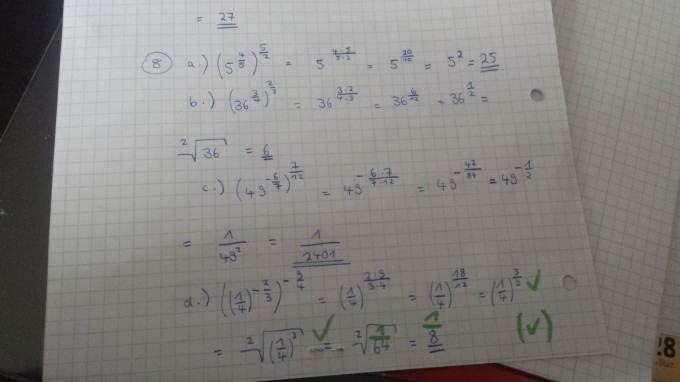 = 27
8 a.) (5^(4/5))^(5/2) = 5^(4·5/5·2) = 5^(20/10) = 5^2 = 25
b.) (36^(3/4))^(2/3) = 36^(3·2/4·3) = 36^(6/12) = 36^(1/2) =
²√36 = 6
c.) (49^(-6/7))^(7/12) = 49^(-6·7/7·12) = 49^(-42/84) = 49^(-1/2)
= 1/49^2 = 1/2401
d.) ((1/4)^(-2/3))^(-9/4) = (1/4)^(2·9/3·4) = (1/4)^(18/12) = (1/4)^(3/2) ✓
= ²√((1/4)^3) ✓ = ²√(1/64) = 1/8 (✓)
28